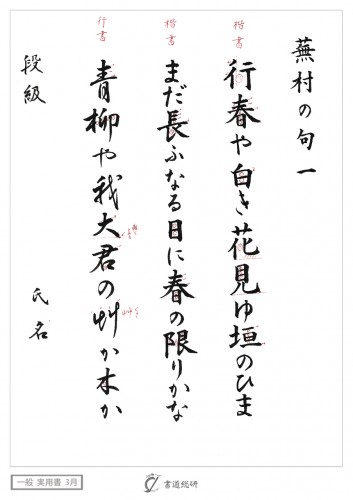 蕪村の句 一
楷書
行春や白き花見ゆ垣のひま
楷書
まだ長ふなる日に春の限りかな
行書
青柳や我大君の艸か木か
段級
氏名
一般 実用書 3月
書道総研